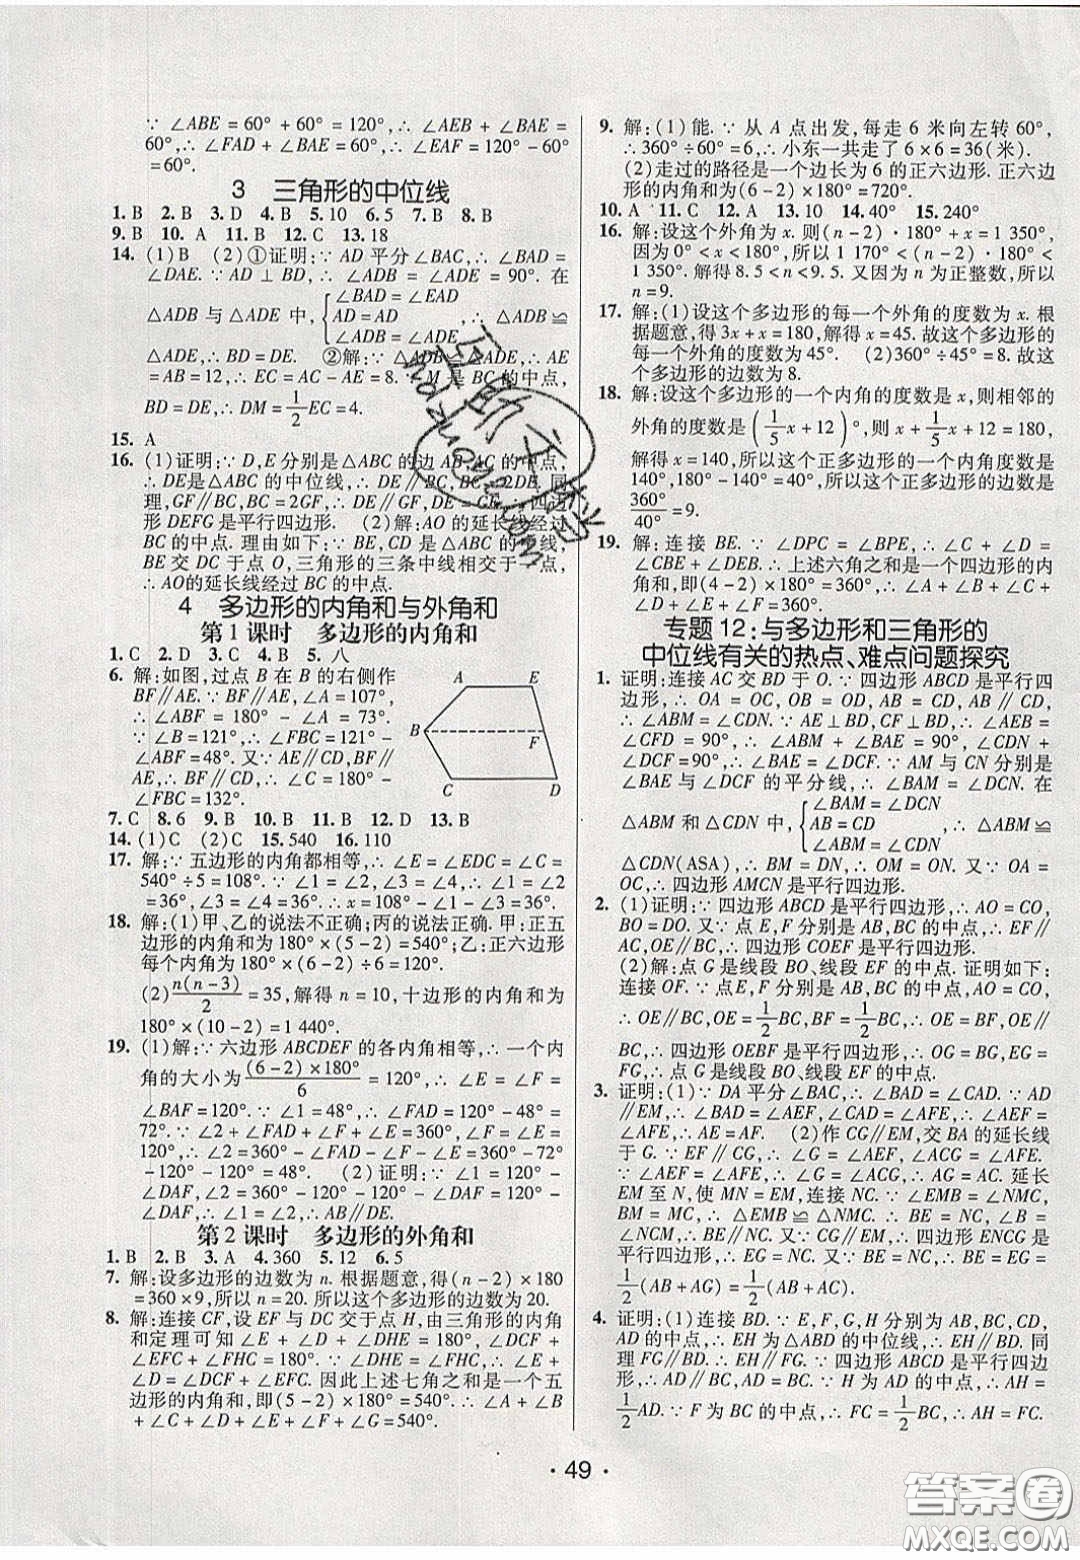 ∵ ∠ABE = 60° + 60° = 120°,∴ ∠AEB + ∠BAE =
60°,∴ ∠FAD + ∠BAE = 60°,∴ ∠EAF = 120° - 60°
= 60°.
3 三角形的中位线
1. B 2. B 3. D 4. B 5. 10 6. 5 7. B 8. B
9. B 10. A 11. B 12. C 13. 18
14. (1) B (2)①证明:∵ AD 平分∠BAC,∴ ∠BAD =
∠DAE. ∵ AD ⊥ BD,∴ ∠ADB = ∠ADE = 90°. 在
△ADB 与 △ADE 中,{∠BAD = ∠EAD
AD = AD
∠ADB = ∠ADE ,∴ △ADB ≌
△ADE,∴ BD = DE. ②解:∵ △ADB ≌ △ADE,∴ AE
= AB = 12,∴ EC = AC - AE = 8. ∵ M 是 BC 的中点,
BD = DE,∴ DM = 1/2 EC = 4.
15. A
16. (1)证明:∵ D,E 分别是△ABC 的边 AB,AC 的中点,
∴ DE是△ABC 的中位线,∴ DE∥BC,BC = 2DE. 同
理,GF∥BC,BC = 2GF,∴ DE∥GF,DE = GF,∴ 四边
形 DEFG 是平行四边形. (2)解:AO 的延长线经过
BC 的中点. 理由如下:∵ BE,CD 是△ABC 的中线,
BE 交 DC 于点 O,三角形的三条中线相交于一点,
∴ AO的延长线经过 BC 的中点.
4 多边形的内角和与外角和
第 1 课时 多边形的内角和
1. C 2. D 3. C 4. B 5. 八
6. 解:如图,过点 B 在 B 的右侧作
BF∥AE. ∵ BF∥AE,∠A = 107°,
∴ ∠ABF = 180° - ∠A = 73°.
∵ ∠B = 121°,∴ ∠FBC = 121° -
∠ABF = 48°. 又∵ AE∥CD,BF∥
AE,∴ BF∥CD,∴ ∠C = 180° -
∠FBC = 132°.
A E
B F
C D
7. C 8. 6 9. B 10. B 11. B 12. D 13. B
14. (1) C (2) C 15. 540 16. 110
17. 解:∵ 五边形的内角都相等,∴ ∠E = ∠EDC = ∠C =
540° ÷ 5 = 108°. ∵ ∠1 = ∠2,∠3 = ∠4,∴ ∠1 = ∠2
= 36°,∠3 = ∠4 = 36°,∴ x = 108° - ∠1 - ∠3 = 36°.
18. 解:(1)甲、乙的说法不正确;丙的说法正确. 甲:正五
边形的内角和为 180° × (5 - 2) = 540°;乙:正六边形
每个内角为 180° × (6 - 2) ÷ 6 = 120°.
(2) n(n-3)/2 = 35,解得 n = 10,十边形的内角和为
180° × (10 - 2) = 1 440°.
19. (1)解:∵ 六边形 ABCDEF 的各内角相等,∴ 一个内
角的大小为 (6-2)×180°/6 = 120°,∴ ∠E = ∠F =
∠BAF = 120°. ∵ ∠1 = 48°,∴ ∠FAD = 120° - 48° =
72°. ∵ ∠2 + ∠FAD + ∠F + ∠E = 360°,∠F = ∠E =
120°,∴ ∠2 = 360° - ∠FAD - ∠F - ∠E = 360° - 72°
- 120° - 120° = 48°. (2)证明:∵ ∠1 = 120° -
∠DAF,∠2 = 360° - 120° - 120° - ∠DAF = 120° -
∠DAF,∴ ∠1 = ∠2,∴ AB∥DE.
第 2 课时 多边形的外角和
1. B 2. B 3. A 4. 360 5. 12 6. 5
7. 解:设多边形的边数为 n. 根据题意,得 (n - 2) × 180
= 360 × 9,所以 n = 20. 所以这个多边形的边数为 20.
8. 解:连接 CF,设 EF 与 DC 交于点 H,由三角形的内角
和定理可知 ∠E + ∠D + ∠DHE = 180°,∠DCF +
∠EFC + ∠FHC = 180°. ∵ ∠DHE = ∠FHC,∴ ∠E +
∠D = ∠DCF + ∠EFC. 因此上述七角之和是一个五
边形的内角和,即 (5 - 2) × 180° = 540°,∴ ∠A + ∠B
+ ∠C + ∠D + ∠E + ∠F + ∠G = 540°.
9. 解:(1)能. ∵ 从 A 点出发,每走 6 米向左转 60°,
∴ 360° ÷ 60° = 6,∴ 小东一共走了 6 × 6 = 36(米).
(2)走过的路径是一个边长为 6 的正六边形. 正六边
形的内角和为(6 - 2) × 180° = 720°.
10. A 11. C 12. A 13. 10 14. 40° 15. 240°
16. 解:设这个外角为 x. 则(n - 2) · 180° + x = 1 350°,
因为 0° < x < 180°,所以 1 170° < (n - 2) · 180° <
1 350°. 解得 8. 5 < n < 9. 5. 又因为 n 为正整数,所以
n = 9.
17. 解:(1)设这个多边形的每一个外角的度数为 x. 根
据题意,得 3x + x = 180,解得 x = 45. 故这个多边形的
每一个外角的度数为 45°. (2)360° ÷ 45° = 8. 故这
个多边形的边数为 8.
18. 解:设这个多边形的一个内角的度数是 x,则相邻的
外角的度数是 (1/5 x + 12)°,则 x + 1/5 x + 12 = 180,
解得 x = 140,所以这个正多边形的一个内角度数是
140°,180° - 140° = 40°,所以这个正多边形的边数是
360°/40° = 9.
19. 解:连接 BE. ∵ ∠DPC = ∠BPE,∴ ∠C + ∠D =
∠CBE + ∠DEB,∴ 上述六角之和是一个四边形的内
角和,即(4 - 2) × 180° = 360°,∴ ∠A + ∠B + ∠C +
∠D + ∠E + ∠F = 360°.
专题 12:与多边形和三角形的
中位线有关的热点、难点问题探究
1. 证明:连接 AC 交 BD 于 O. ∵ 四边形 ABCD 是平行四
边形,∴ OA = OC,OB = OD,AB = CD,AB ∥ CD,
∴ ∠ABM = ∠CDN. ∵ AE⊥BD,CF⊥BD,∴ ∠AEB =
∠CFD = 90°,∴ ∠ABM + ∠BAE = 90°,∠CDN +
∠DCF = 90°,∴ ∠BAE = ∠DCF. ∵ AM 与 CN 分别是
∠BAE 与 ∠DCF 的平分线,∴ ∠BAM = ∠DCN. 在
△ABM 和 △CDN 中,{∠BAM = ∠DCN
AB = CD
∠ABM = ∠CDN ,∴ △ABM ≌
△CDN(ASA),∴ BM = DN,∴ OM = ON. 又∵ OA =
OC,∴ 四边形 AMCN 是平行四边形.
2. (1)证明:∵ 四边形 ABCD 是平行四边形,∴ AO = CO,
BO = DO. 又∵ 点 E,F 分别是 AB,BC 的中点,∴ EF∥
AC,OE∥BC,∴ 四边形 COEF 是平行四边形.
(2)解:点 G 是线段 BO、线段 EF 的中点. 证明如下:
连接 OF. ∵ 点 E,F 分别是 AB,BC 的中点,AO = CO,
∴ OE∥BC,OE = 1/2 BC,BF = 1/2 BC,∴ OE = BF,OE
∥BF,∴ 四边形 OEBF 是平行四边形,∴ OG = BG,EG
= FG,∴ 点 G 是线段 BO、线段 EF 的中点.
3. 证明:(1)∵ DA 平分∠BAC,∴ ∠BAD = ∠CAD. ∵ AD
∥EM,∴ ∠BAD = ∠AEF,∠CAD = ∠AFE,∴ ∠AEF =
∠AFE,∴ AE = AF. (2)作 CG∥EM,交 BA 的延长线
于 G. ∵ EF∥CG,∴ ∠G = ∠AEF,∠ACG = ∠AFE.
∵ ∠AEF = ∠AFE,∴ ∠G = ∠ACG,∴ AG = AC. 延长
EM 至 N,使 MN = EM,连接 NC. ∵ ∠EMB = ∠NMC,
BM = MC,∴ △EMB ≌ △NMC,∴ BE = NC,∠B =
∠NCM,∴ BE∥NC. 又∵ CG∥EM,∴ 四边形 ENCG 是
平行四边形,∴ EG = NC. 又∵ BE = NC,∴ BE = EG =
1/2 (AB + AG) = 1/2 (AB + AC).
4. 证明:(1)连接 BD. ∵ E,F,G,H 分别为 AB,BC,CD,
AD 的中点,∴ EH 为△ABD 的中位线,∴ EH∥BD. 同
理 FG∥BD. ∴ EH∥FG. ∵ 四边形 ABCD 是平行四边
形,∴ AD∥BC,AD = BC. ∵ H 为 AD 的中点,∴ AH =
1/2 AD. ∵ F 为 BC 的中点,∴ FC = 1/2 BC,∴ AH = FC.
· 49 ·
答案圈
MXQE.COM